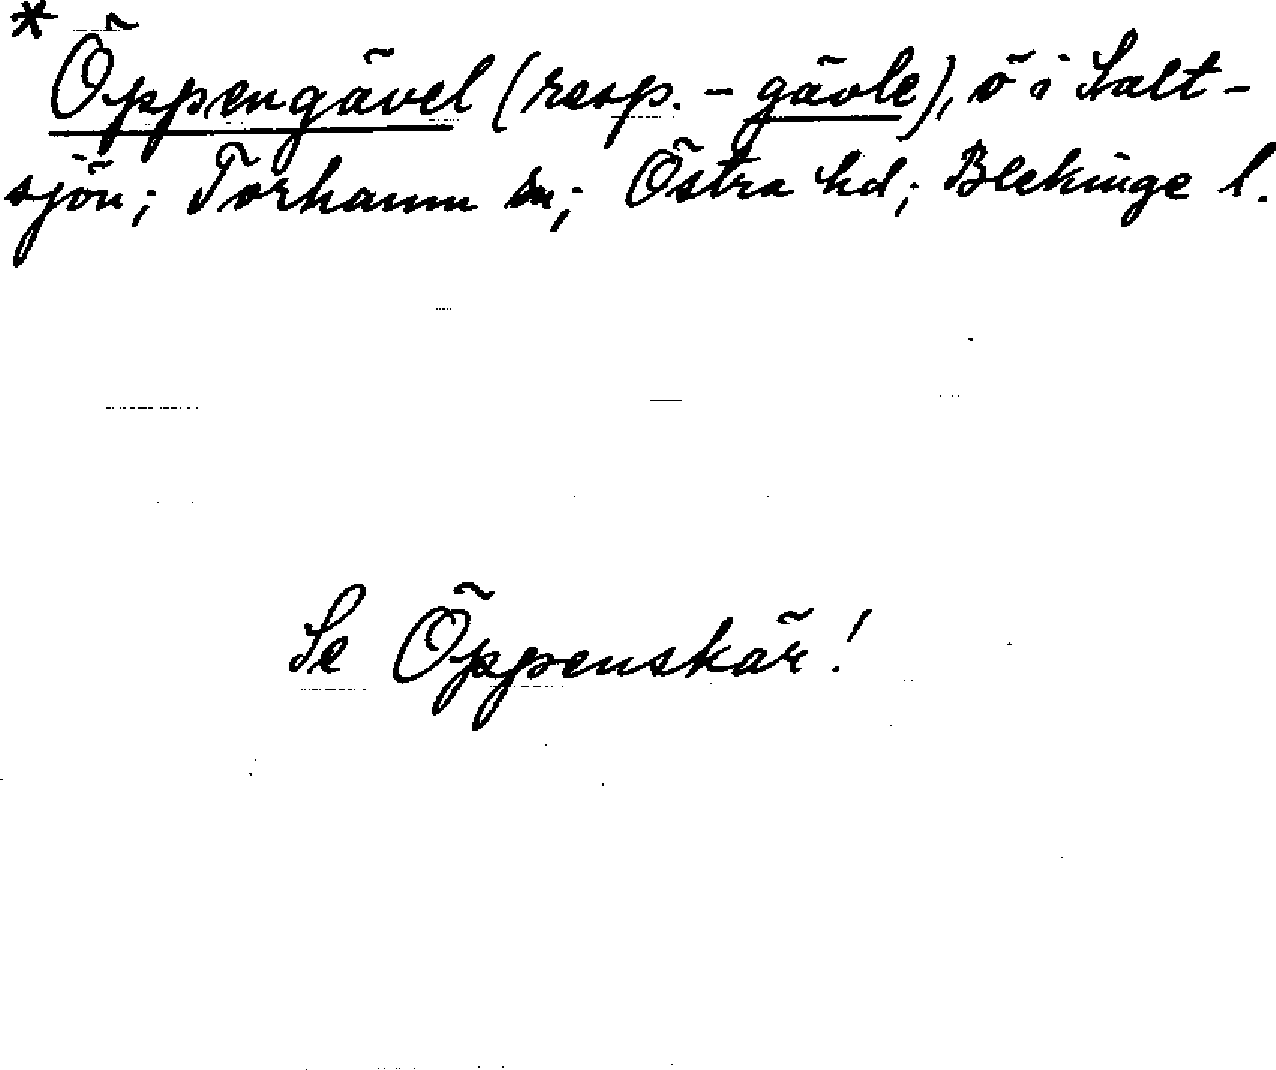 * Öppengävel (resp. - gävle), ö i Salt-
sjön; Torhamn sn; Östra hd; Blekinge l.
Se Öppenskär!